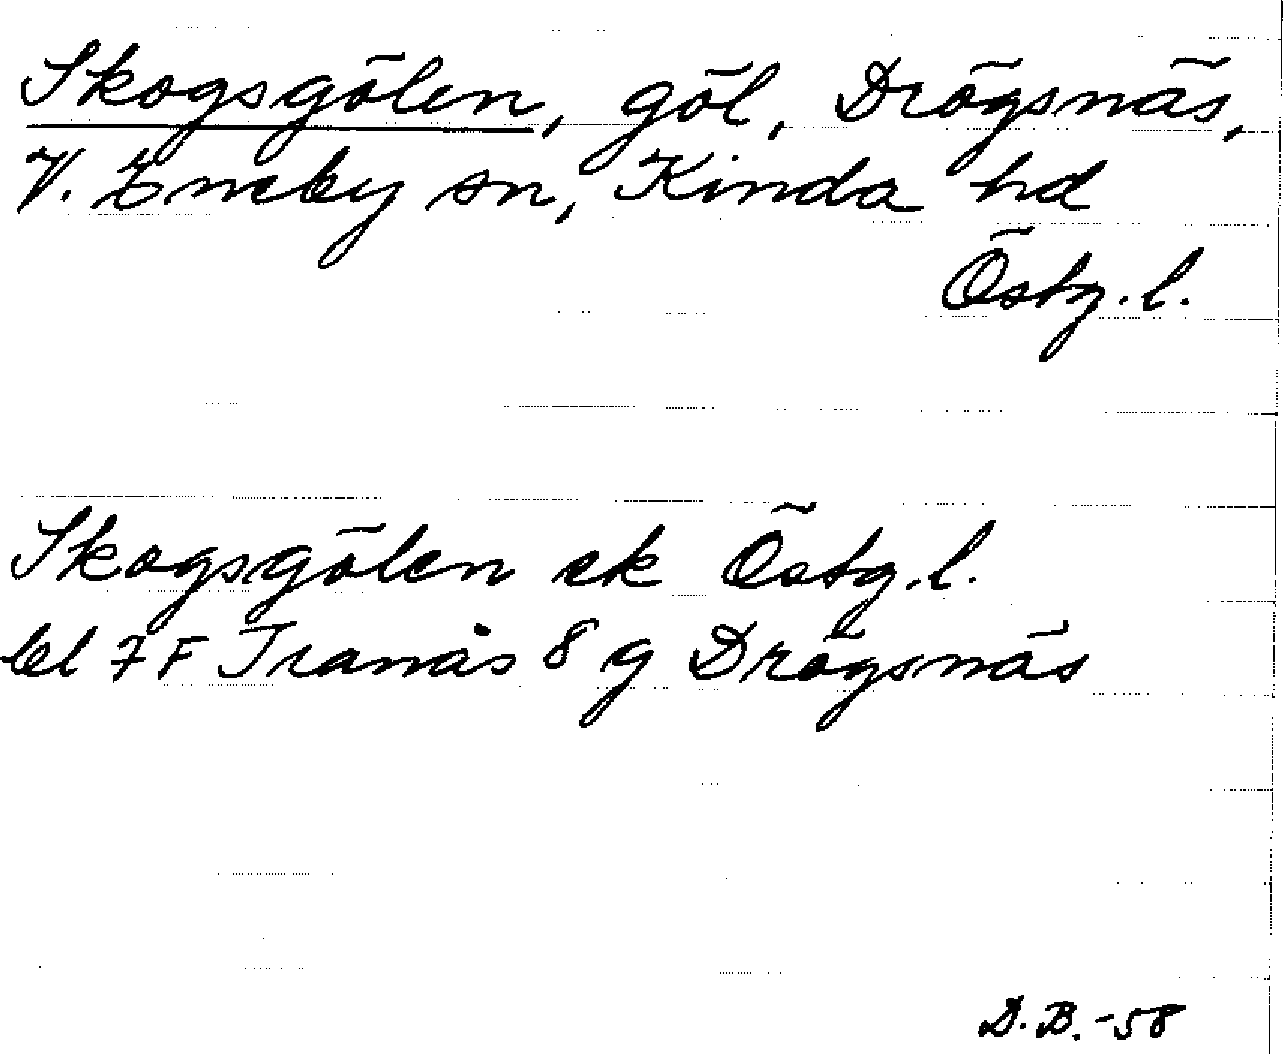 Skogsgölen, göl, Drögsnäs,
V. Eneby sn, Kinda hd
Östg. l.
Skogsgölen ek Östg. l.
bl 7 F Tranås 8 g Drögsnäs
D.B. -58